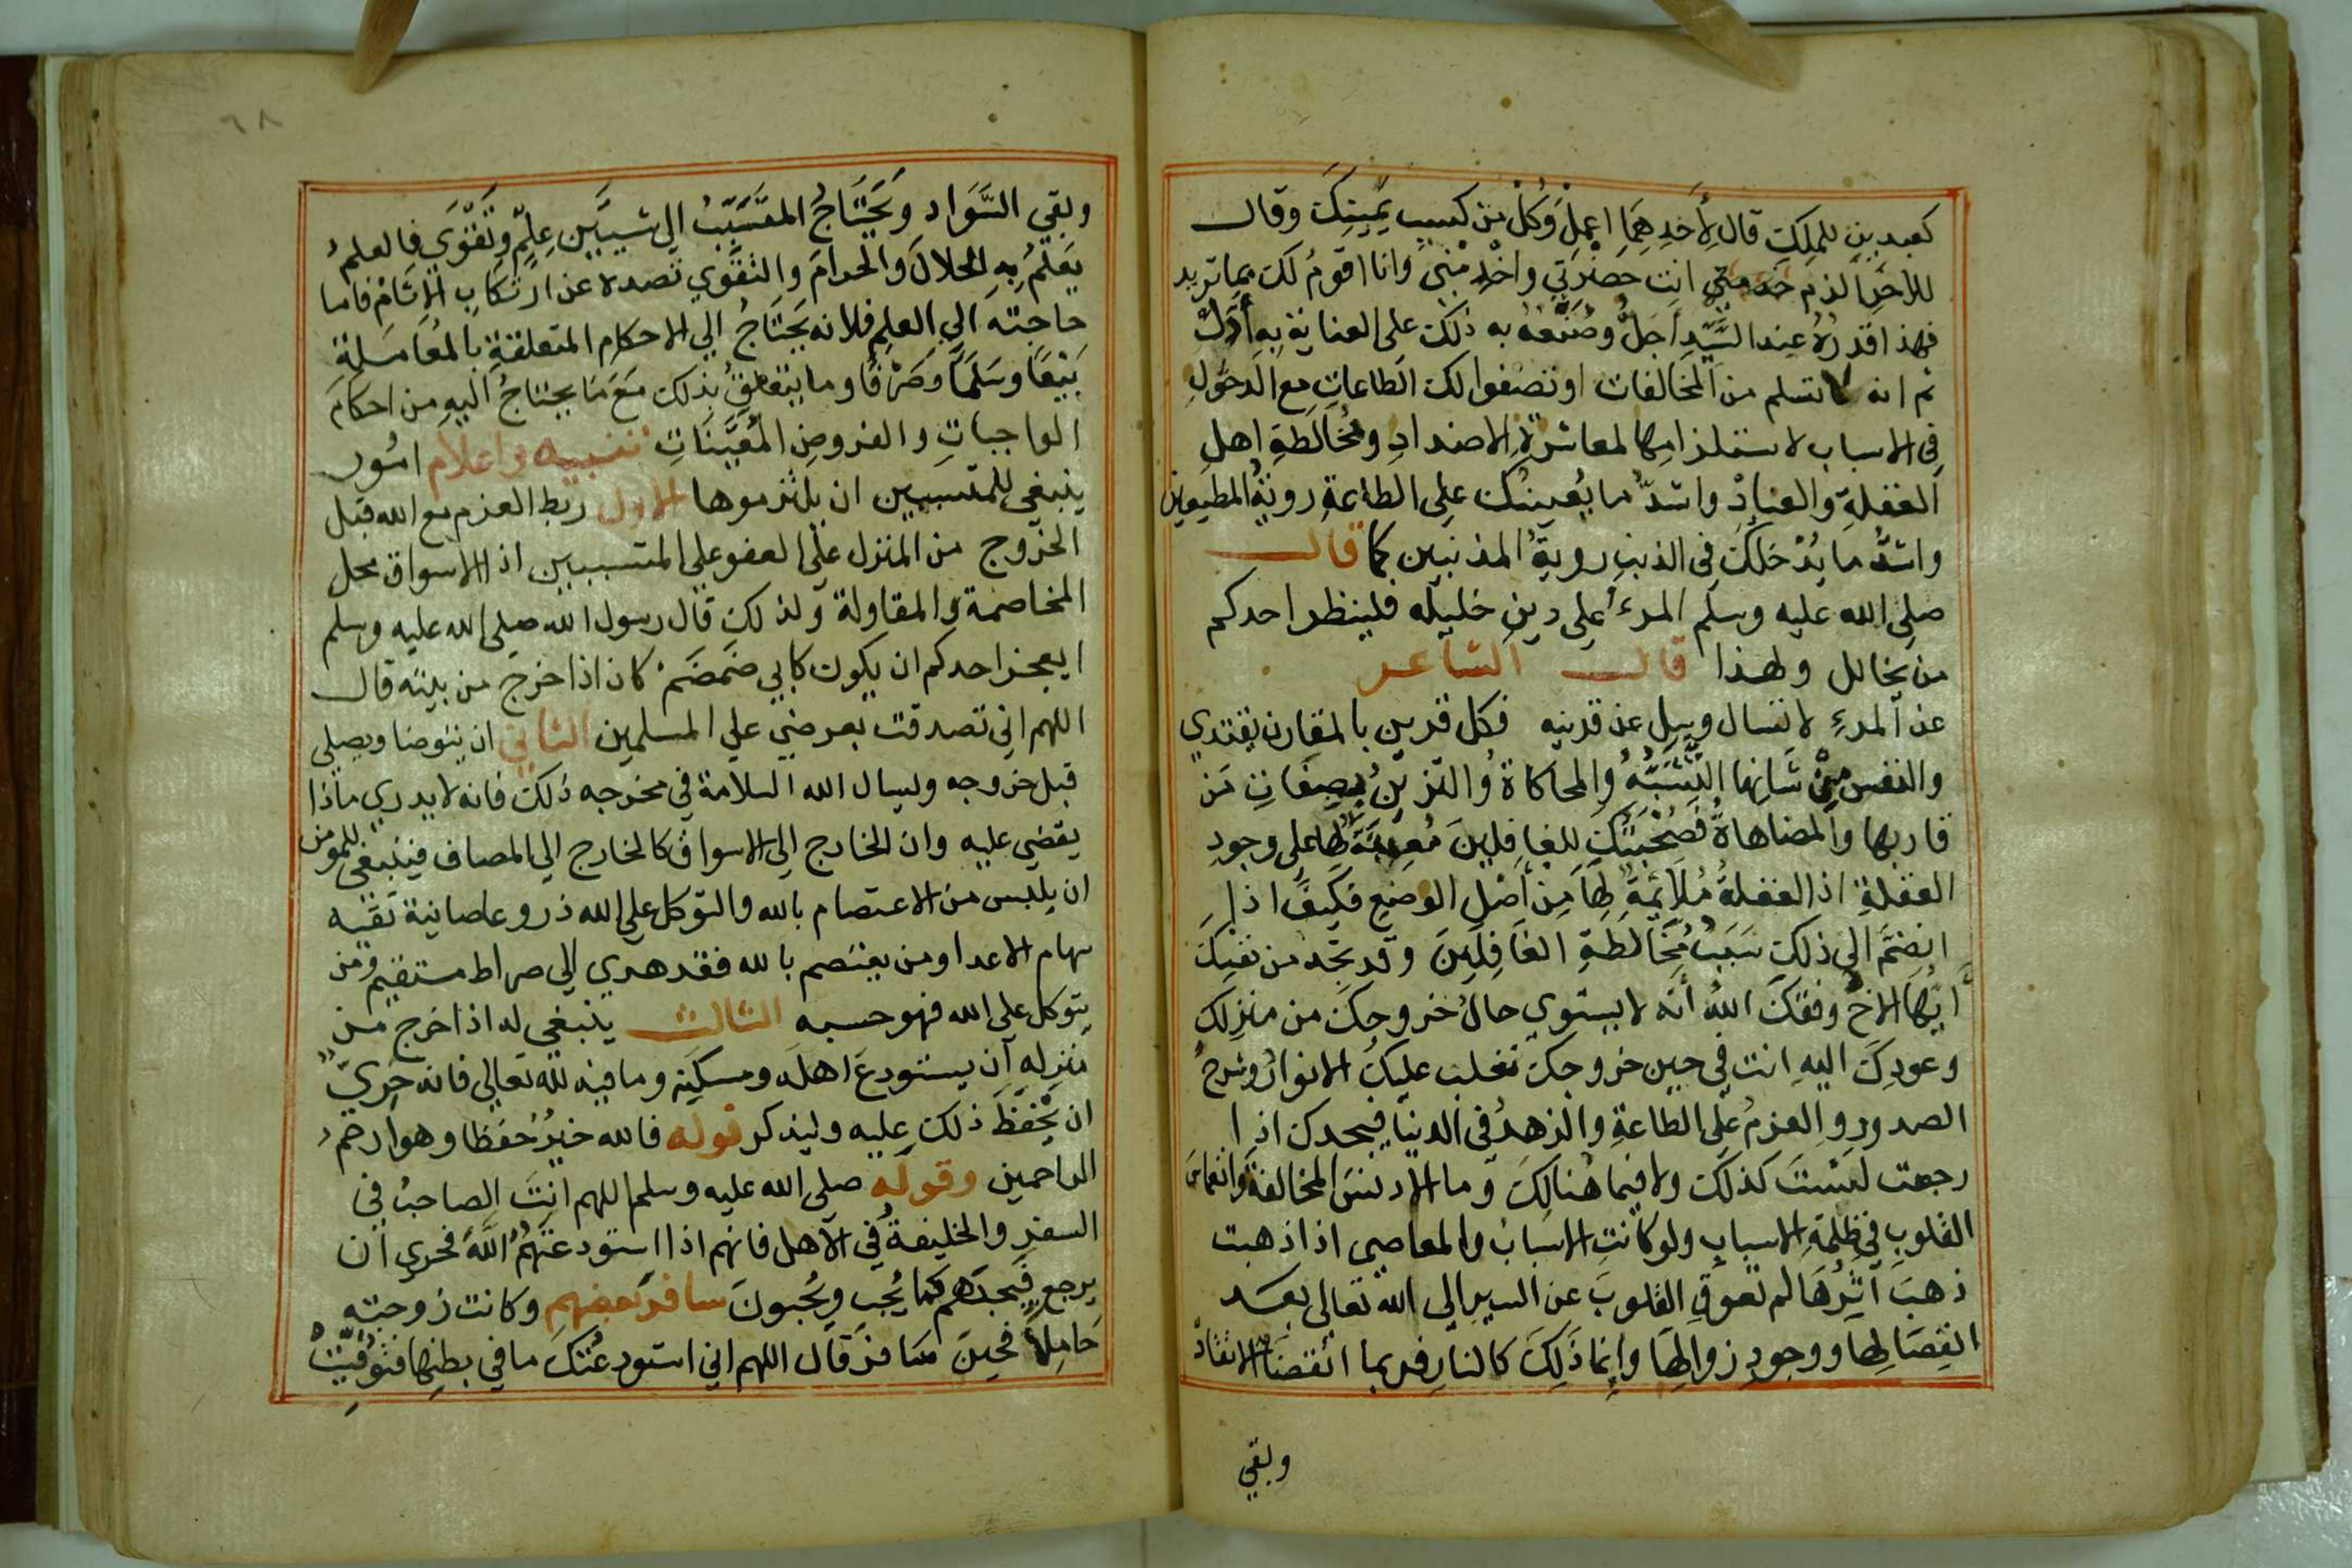 كعبدين للملك قال لأحدهما اعمل وكل من كسب يمينك وقال
للاخر الزم خدمتي انت حضرتي واخدمني وانا اقوم لك بما تريد
فهذا قدره عند السيد أجل وصنعه به ذلك على العناية به أدل
ثم انه لا تسلم من المخالفات او تصفوا لك الطاعات مع الدخول
في الاسباب لاستلزامها لمعاشرة الاضداد ومخالطة اهل
الغفلة والعناد واشد ما يعينك على الطاعة روية المطيعين
واشد ما يدخلك في الذنب روية المذنبين كما قال
صلى الله عليه وسلم المرء على دين خليله فلينظر احدكم
من يخالل ولهذا قال الشاعر
عن المرء لا تسال وسل عن قرينه فكل قرين بالمقارن يقتدي
والنفس من شانها التشبه والمحاكاة والتزين بصفات من
قاربها والمضاهاة فصحبتك للغافلين معينة لها على وجود
الغفلة اذ الغفلة ملائمة لها من أصل الوضع فكيف اذا
انضم الى ذلك سبب مخالطة الغافلين وقد تجد من نفسك
أيها الاخ وفقك الله أنه لا يستوي حال خروجك من منزلك
وعودك اليه انت في حين خروجك تغلب عليك الانوار وشرح
الصدور والعزم على الطاعة والزهد في الدنيا فيجدك اذا
رجعت لست كذلك ولا فيما هنالك وما الا دنس المخالفة وانغماس
القلوب في ظلمة الاسباب ولو كانت الاسباب والمعاصي اذا ذهبت
ذهب أثرها لم تعوق القلوب عن السير الى الله تعالى بعد
انفصالها ووجود زوالها وإنما ذلك كالنار فربما انقضى الاتقاد
وبقي
٦٨
وبقي السواد ويحتاج المتسبب الي شيين علم وتقوى فالعلم
يعلم به الحلال والحرام والتقوي تصده عن ارتكاب الاثام فاما
حاجته الي العلم فلانه يحتاج الي الاحكام المتعلقة بالمعاملة
بيعا وسلما وصرفا وما يتعلق بذلك مع ما يحتاج اليه من احكام
الواجبات والفروض المعينات تنبيه واعلام امور
ينبغي للمتسببين ان يلتزموها الاول ربط العزم مع الله قبل
الخروج من المنزل على العفو علي المتسببين اذ الاسواق محل
المخاصمة والمقاولة ولذلك قال رسول الله صلى الله عليه وسلم
ايعجز احدكم ان يكون كابي ضمضم كان اذا خرج من بيته قال
اللهم اني تصدقت بعرضي علي المسلمين الثاني ان يتوضا ويصلي
قبل خروجه وليسال الله السلامة في مخرجه ذلك فانه لا يدري ماذا
يقضي عليه وان الخارج الى الاسواق كالخارج الي المصاف فينبغي للمومن
ان يلبس من الاعتصام بالله والتوكل علي الله دروعا صانية تقيه
سهام الاعدا ومن يعتصم بالله فقد هدي الي صراط مستقيم ومن
يتوكل على الله فهو حسبه الثالث ينبغي له اذا خرج من
منزله أن يستودع اهله ومسكنه وما فيه لله تعالي فانه حري
ان يحفظ ذلك عليه وليذكر قوله فالله خير حفظا وهو ارحم
الراحمين وقوله صلى الله عليه وسلم اللهم انت الصاحب في
السفر والخليفة في الاهل فانهم اذا استودعتهم الله فحري ان
يرجع فيجدهم كما يحب ويحبون سافر بعضهم وكانت زوجته
حاملا فحين سافر قال اللهم اني استودعتك ما في بطنها فتوفيت